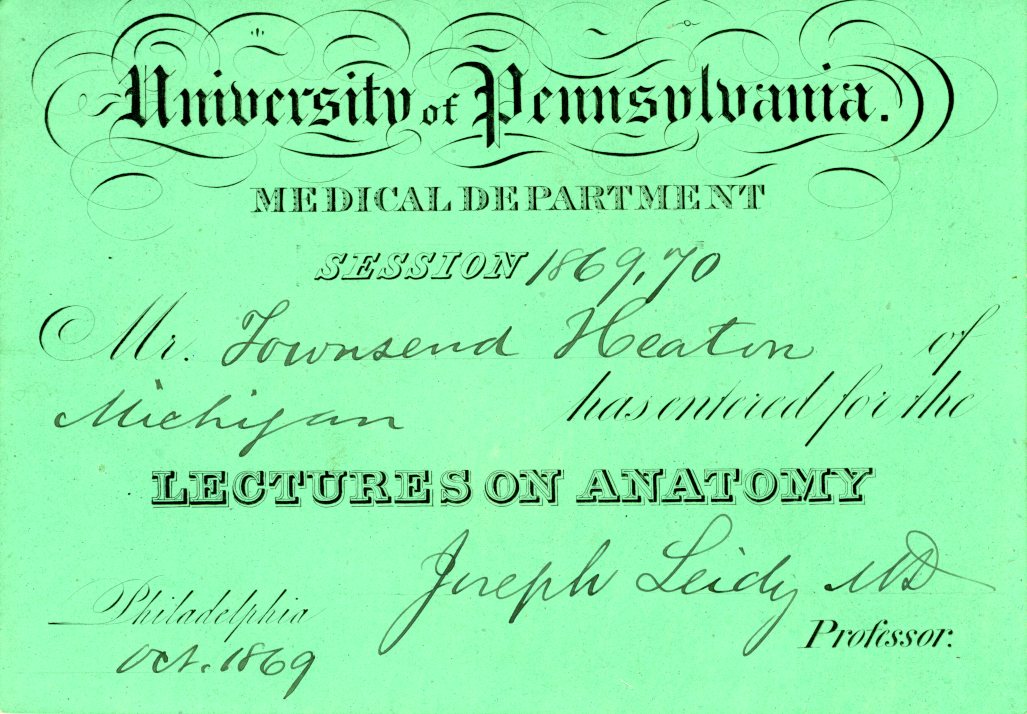 University of Pennsylvania.
MEDICAL DEPARTMENT
SESSION 1869,70
Mr. Townsend Heaton of
Michigan has entered for the
LECTURES ON ANATOMY
Joseph Leidy MD
Professor.
Philadelphia
Oct. 1869